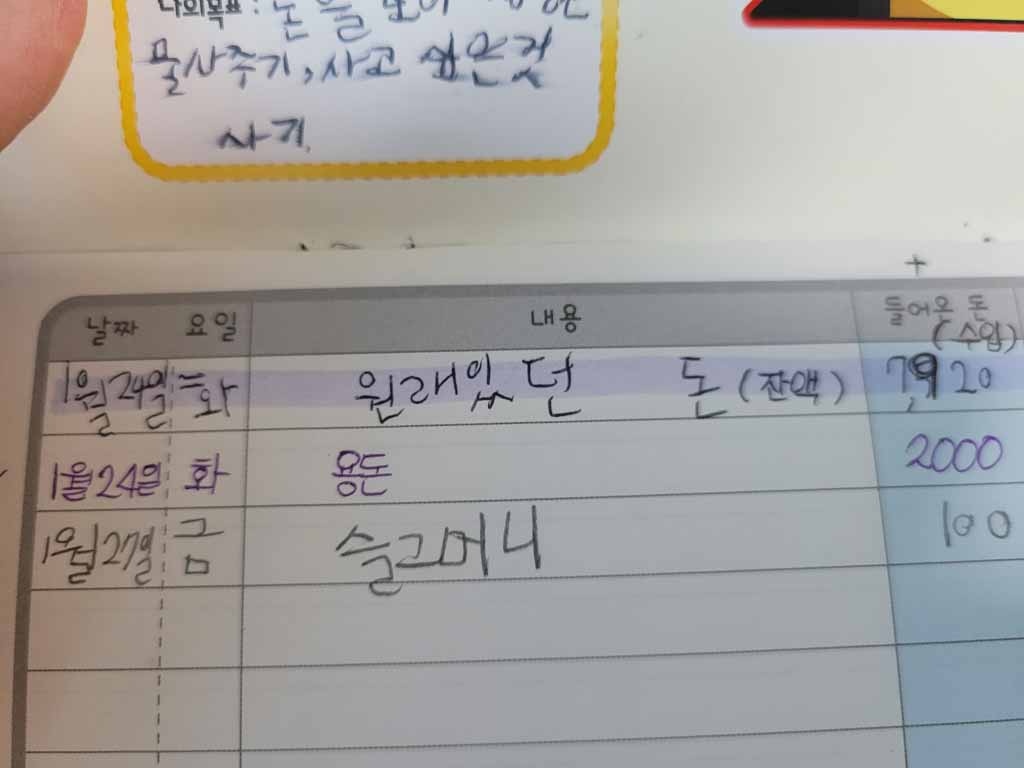 나의목표 : 돈을 모아
물사주기, 사고 싶은것
사기
날짜 요일 내용 들어온 돈
(수입)
1월24일 화 원래있던 돈 (잔액) 7,920
1월24일 화 용돈 2000
1월27일 금 슬그머니 100